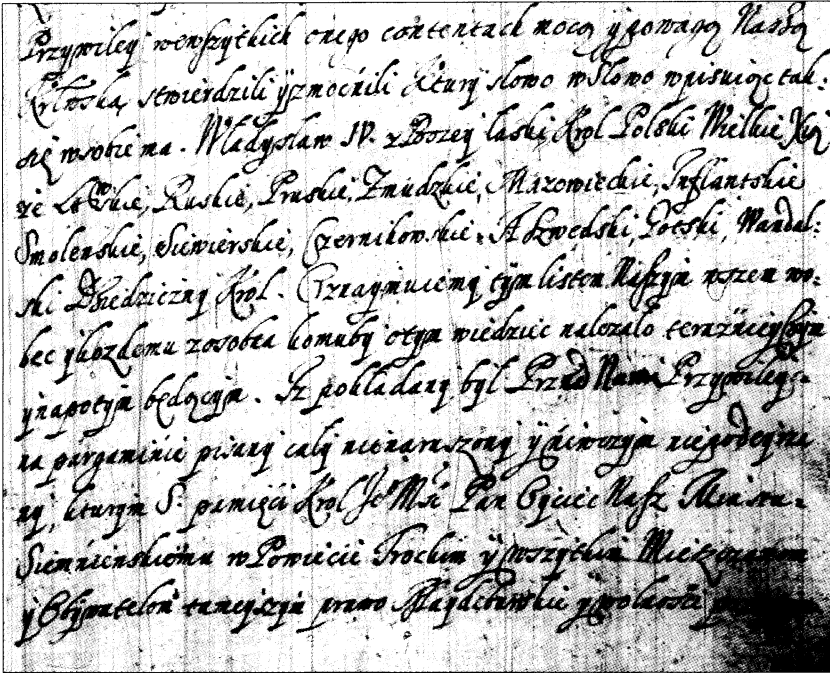 Przywiley wewszytkich onego contentach mocą y powagą Naszą
Królewską stwierdzili y zmocnili który słowo wsłowo wpisuiąc tak:
się wsobie ma. Władysław IV. z Bozey łaski, Krol Polski Wielkie Xią
że Litt: Ruskie, Pruskie, Zmudzkie, Mazowieckie, Inflantskie
Smolenskie, Siewierskie, Czernihowskie. A Szwedski, Gotski, Wandal:
ski Dziedziczny Król. Oznaymuiemy tym listem Naszym wszem wo:
bec y kozdemu zosobna komuby otym wiedziec nalezało teraznieyszym
y napotym będącym. Iz pokładany był Przed Nami Przywiley:
na pargaminie pisany cały nienaruszony y niwczym niepodeyrza
ny, którym S: pamięci Król Je Mść Pan Oyciec Nasz Miastu:
Siemnienskiemu w Powiecie Trockim y wszytkim Mieszczanom
y Obywatelom tamejszym prawo Maydeburskie y wolności